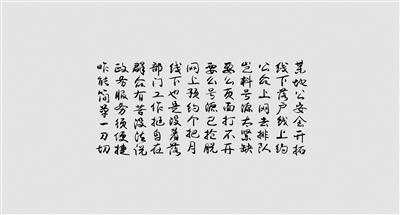 某地公安全开拓
线下落户线上约
公众上网去排队
岂料号源太紧缺
要么页面打不开
要么号源已抢脱
网上预约个把月
线下也是没着落
部门工作挺自在
群众有苦没法说
政务服务须便捷
咋能简单一刀切